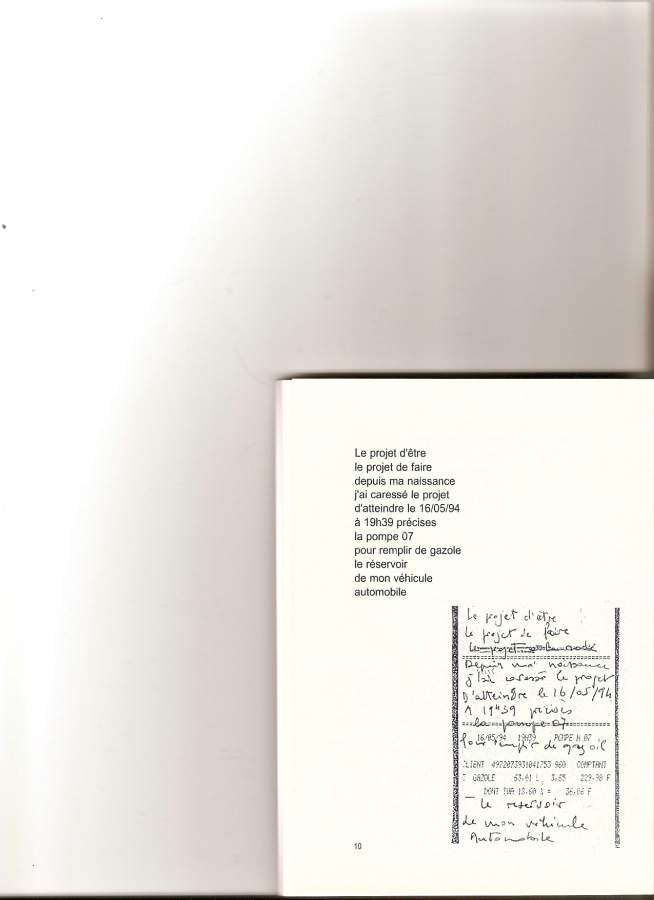 Le projet d'être
le projet de faire
depuis ma naissance
j'ai caressé le projet
d'atteindre le 16/05/94
à 19h39 précises
la pompe 07
pour remplir de gazole
le réservoir
de mon véhicule
automobile
Le projet d'etre
Le projet de faire
Le projet
Depuis ma naissance
j'ai caressé le projet
D'atteindre le 16/05/94
A 19H39 précises
la pompe 07
16/05/94 19H39 POMPE N.07
Pour remplir de gazoil
CLIENT 4972073931041753 960 COMPTANT
GAZOLE 63.01 L 3.65 229.98 F
DONT TVA 18.60 % = 36.06 F
Le reservoir
de mon véhicule
Automobile
10